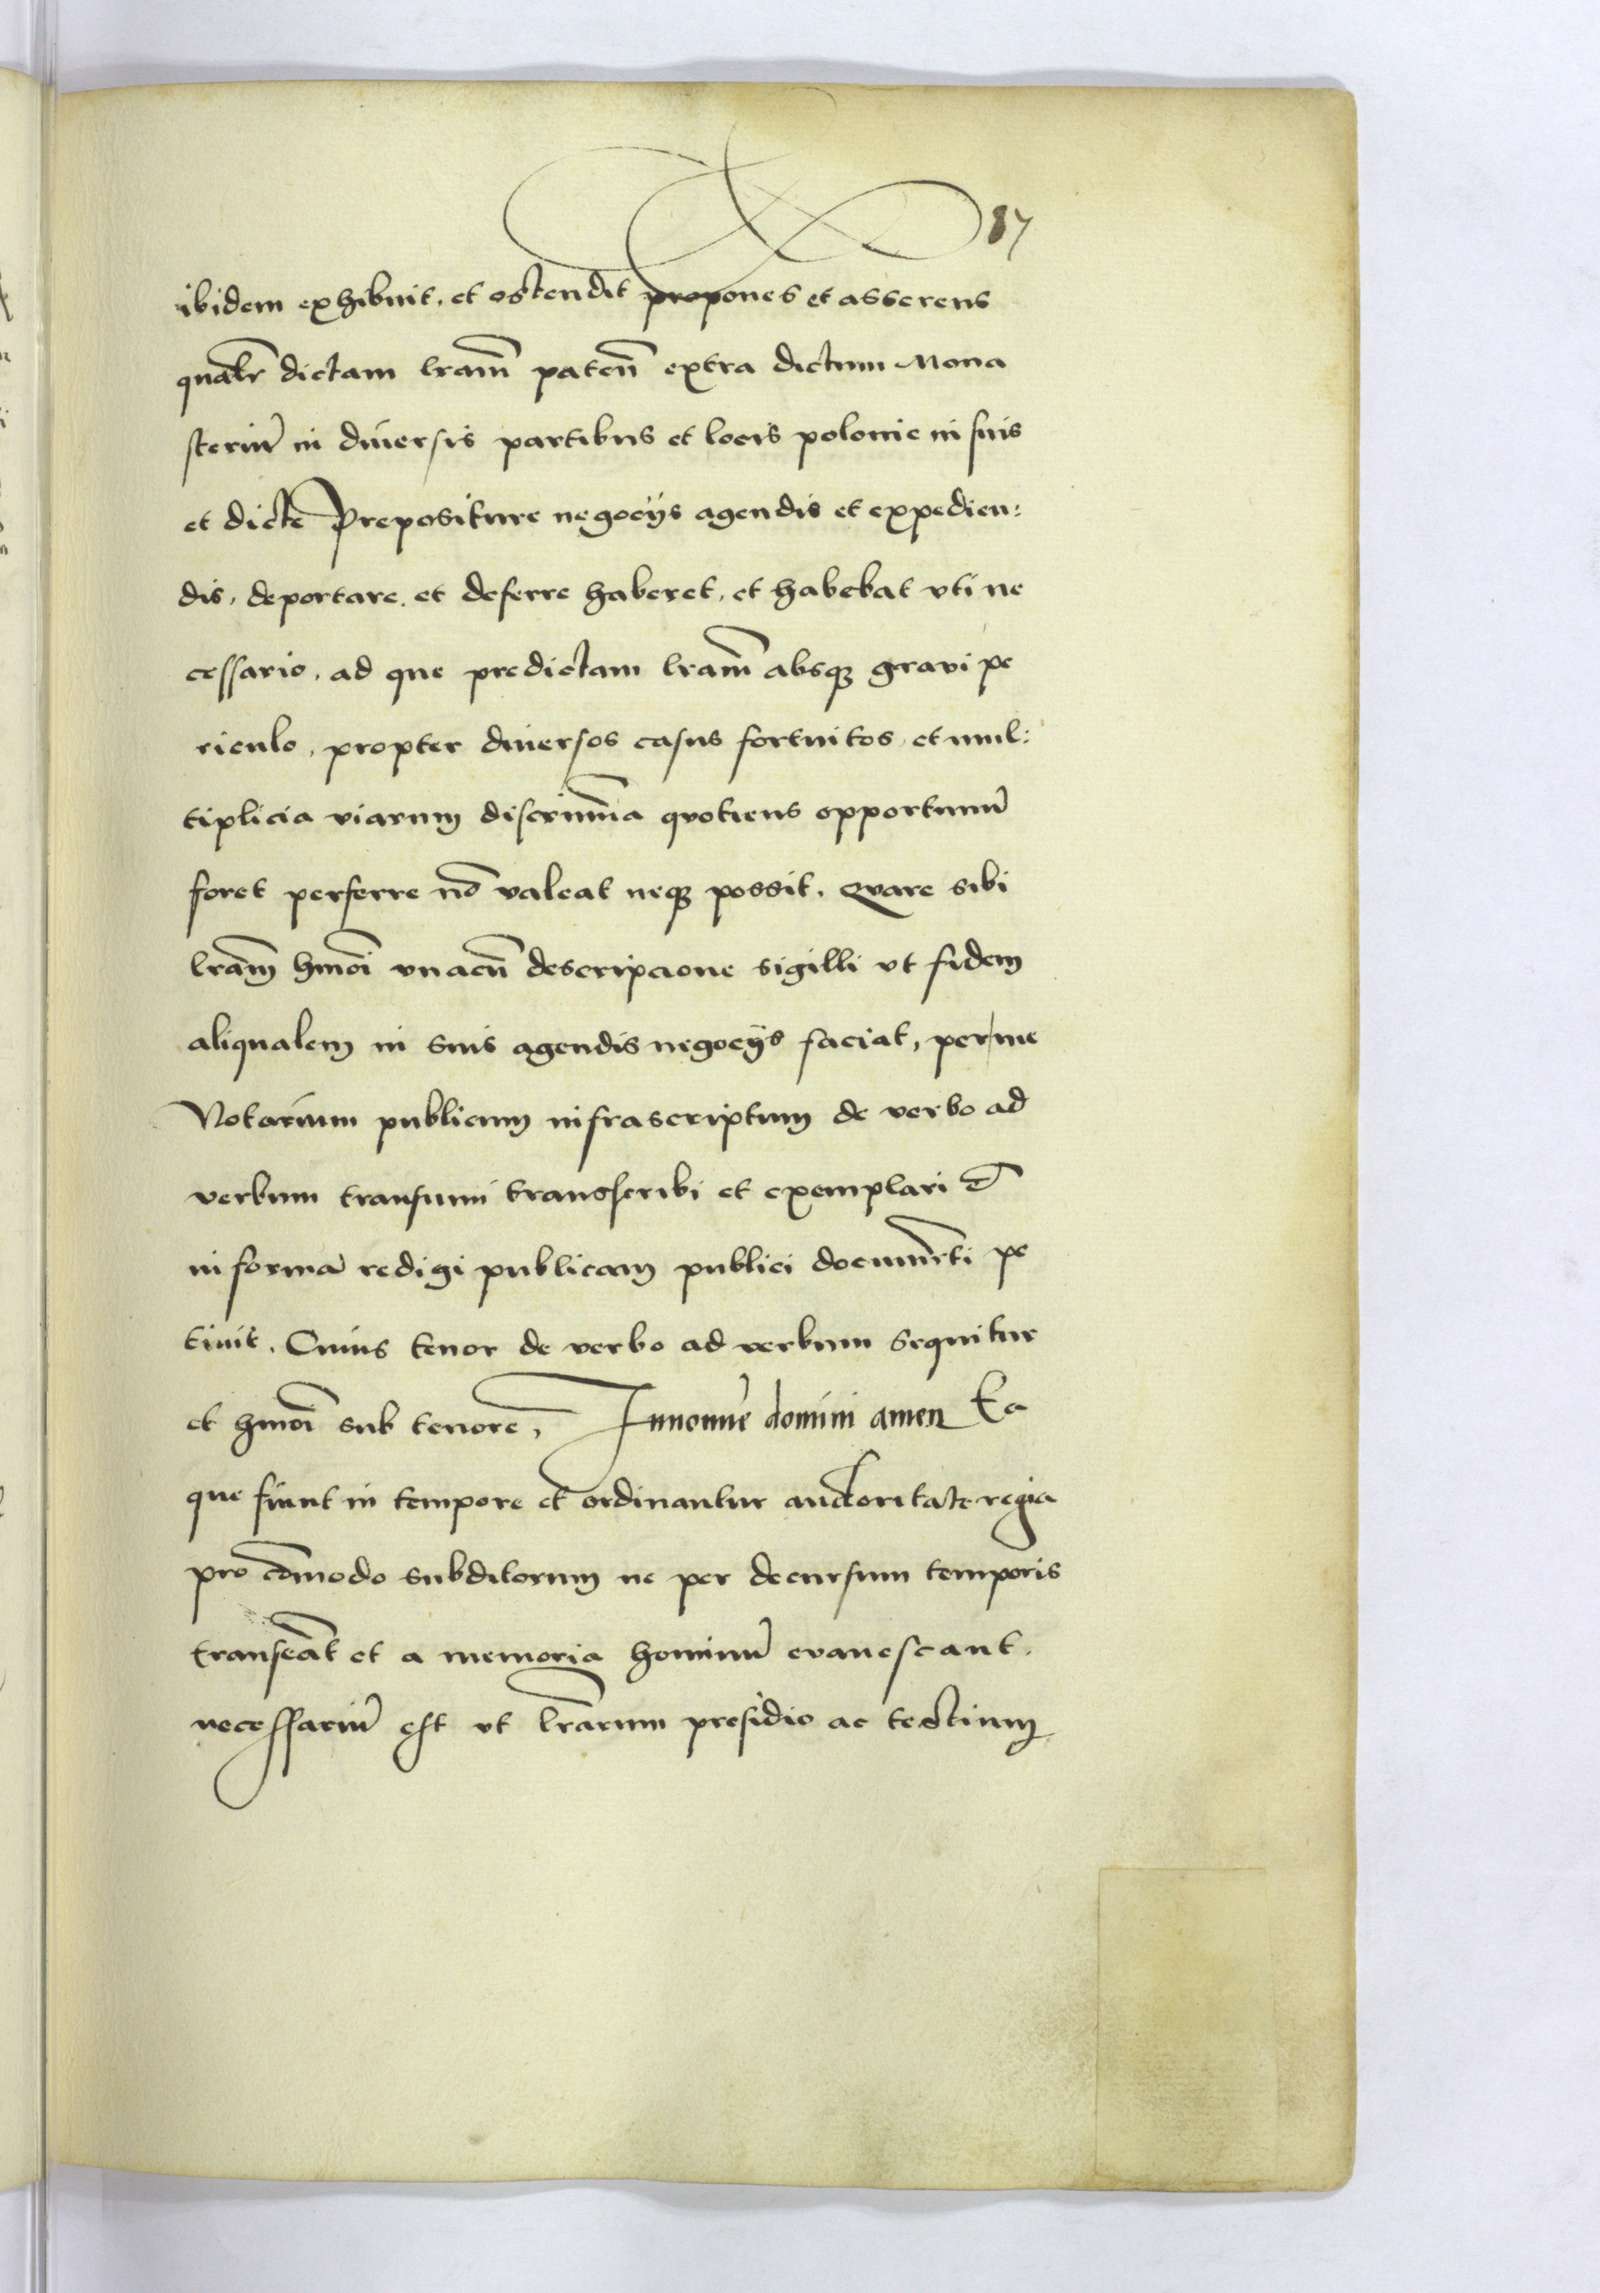 87
ibidem exhibuit. et ostendit propones et asserens
qualr̄ dictam lram̄ pateñ extra dictum Mona
steriũ in diuersis partibus et locis polonie in suis
et dicte Prepositure negocijs agendis et expedien:
dis, deportare. et deferre haberet, et habebat vti ne
cessario, ad que predictam lram̄ absqȝ gravi pe
riculo, propter diuersos casus fortuitos, et mul:
tiplicia viarum discrimīa quotiens opportunũ
foret perferre nõ valeat neqȝ possit. Quare sibi
lram̄ hmõi vnacũ descripcione sigilli vt fidem
aliqualem in suis agendis negocijs faciat, per me
Notarium publicum infrascriptum de verbo ad
verbum transumi transscribi et exemplari &
in formã redigi publicam publici documẽti pe
tiuit. Cuius tenor de verbo ad verbum sequitur
et hmõi sub tenore, Innomīe domini amen Ea
que fiunt in tempore et ordinantur auctoritate regia
pro cōmodo subditorum ne per decursum temporis
transeãt et a memoria hominũ evanescant.
necessariũ est vt lrārum presidio ac testium